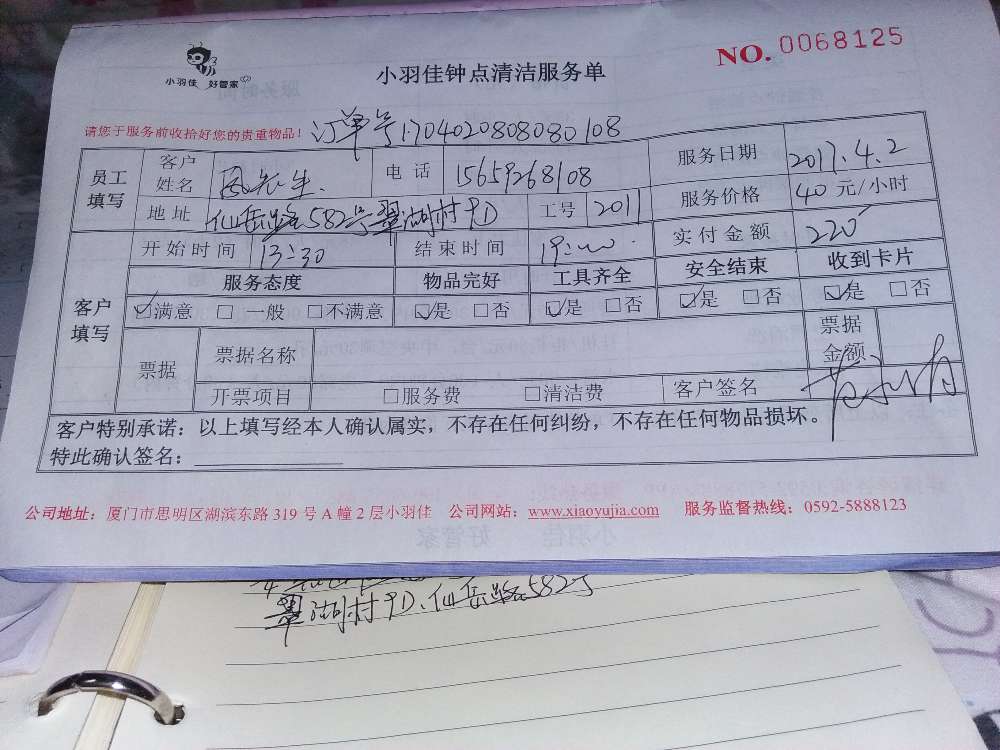 小羽佳 好管家
小羽佳钟点清洁服务单
NO. 0068125
请您于服务前收拾好您的贵重物品! 订单号1704020808080108
员工填写 客户姓名 先生. 电话 15659268108 服务日期 2017.4.2
地址 仙岳路582号翠湖村 工号 2011 服务价格 40 元/小时
客户填写 开始时间 13:30 结束时间 19:00. 实付金额 220
服务态度 物品完好 工具齐全 安全结束 收到卡片
☑满意 □ 一般 □不满意 ☑是 □否 ☑是 □否 ☑是 □否 ☑是 □否
票据 票据名称 票据金额
开票项目 □服务费 □清洁费 客户签名
客户特别承诺:以上填写经本人确认属实,不存在任何纠纷,不存在任何物品损坏。
特此确认签名:
公司地址:厦门市思明区湖滨东路 319 号 A 幢 2 层小羽佳 公司网站:www.xiaoyujia.com 服务监督热线:0592-5888123
翠湖村 仙岳路582号